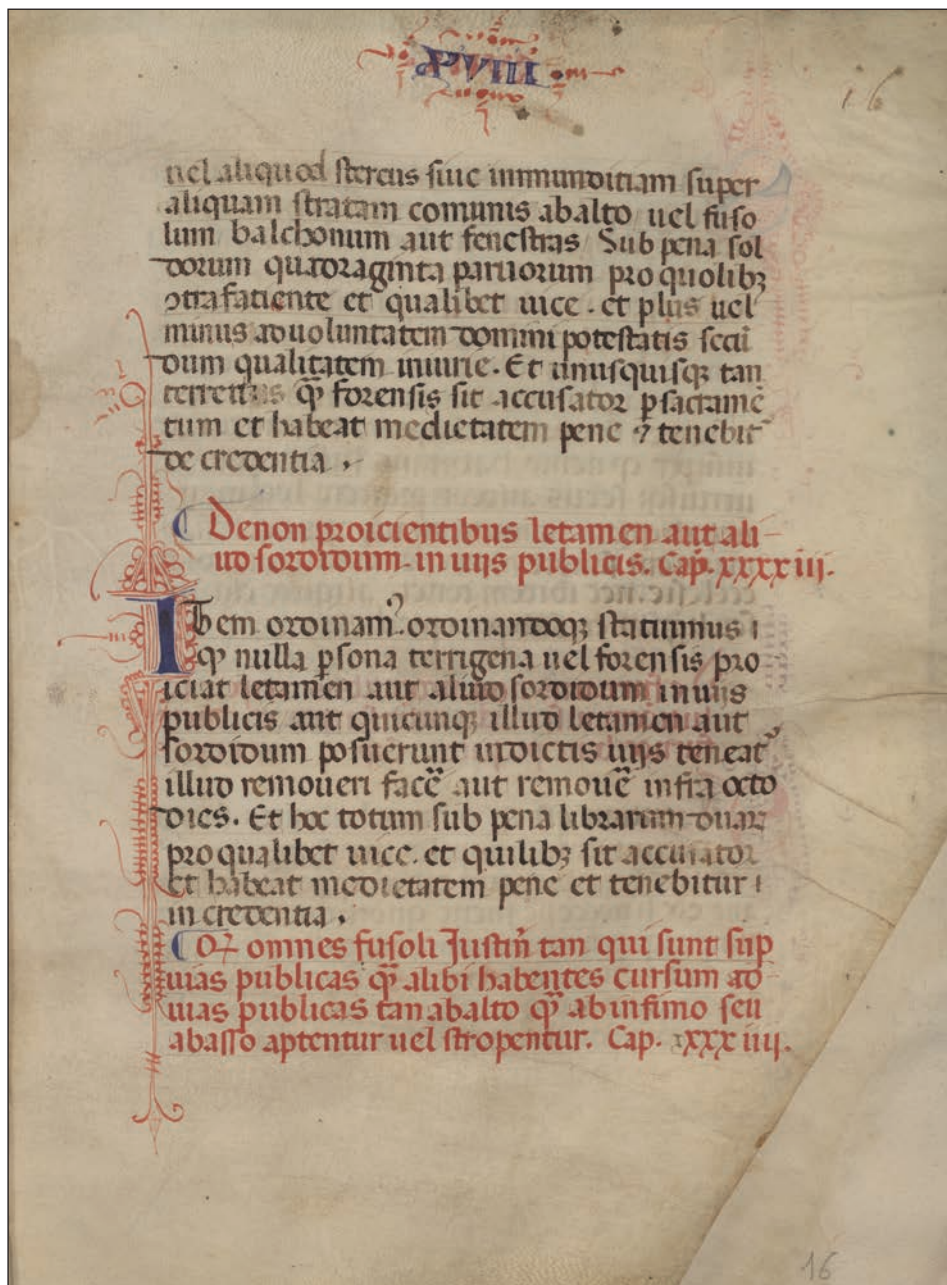 16
uel aliquod stercus siue inmunditiam super
aliquam stratam comunis abalto uel fuso
lum balchonum aut fenestras Sub pena sol
dorum quadraginta paruorum pro quolibꝫ
ↄtrafatiente et qualibet uice. et plus uel
minus ad uoluntatem domini potestatis secū
dum qualitatem iniurie. Et unusquisqꝫ tan
terrenus qꝫ̄ forensis sit accusator ꝑ sacramē
tum et habeat medietatem pene ⁊ tenebit᷑
de credentia.
De non proicientibus letamen aut ali
ud sordidum in uijs publicis. Cap. xxxxiij.
Item ordinamꝰ. ordinandoqꝫ statuimus
qꝫ nulla ꝑsona terrigena uel forensis pro
iciat letamen aut aliud sordidum in uijs
publicis aut quicunqꝫ illud letamen aut
sordidum posuerunt in dictis uijs teneat᷑
illud remoueri facē aut remouē infra octo
dies. Et hoc totum sub pena librarum duaꝝ
pro qualibet uice. et quilibꝫ sit accusator
et habeat medietatem pene et tenebitur
in credentia.
omnes fusoli Justiñ tan qui sunt suꝑ
uias publicas qꝫ̄ alibi habentes cursum ad
uias publicas tan abalto qꝫ̄ ab infimo seu
abasso aptentur uel stropentur. Cap. xxxxiiij.
16